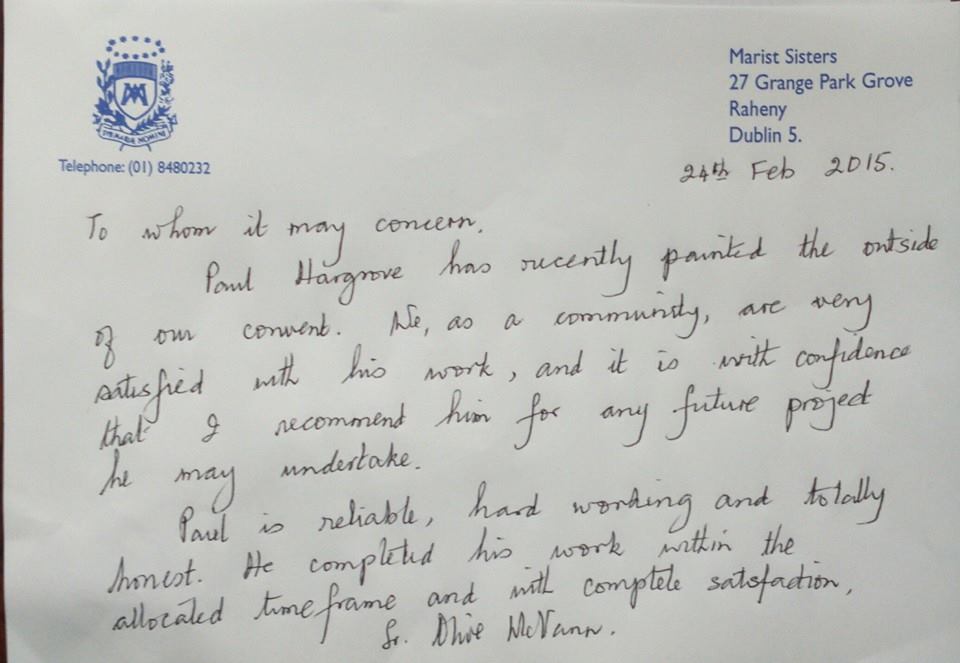 Marist Sisters
27 Grange Park Grove
Raheny
Dublin 5.
Telephone: (01) 8480232
24th Feb 2015.
To whom it may concern.
Paul Hargrove has recently painted the outside
of our convent. We, as a community, are very
satisfied with his work, and it is with confidence
that I recommend him for any future project
he may undertake.
Paul is reliable, hard working and totally
honest. He completed his work within the
allocated timeframe and with complete satisfaction.
Sr. Olive McVann.